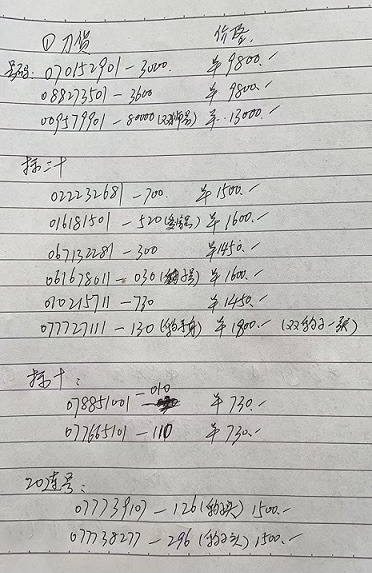 ① 刀货 价格
号码: 070152901-3000. ¥9800.-
088273501-3600 ¥9800.-
009579901-80000 ¥13000.-
标二十
022232681-700. ¥1500.-
016181501-520 ¥1600.-
067132281-300 ¥1450.-
061678011-030 ¥1600.-
010215711-730 ¥1450.-
077727111-130 (豹子号) ¥1900.- (双豹子一张)
标十:
078851001-010 ¥730.-
077665101-110 ¥730.-
20连号:
077739107-126 (豹子头) 1500.-
077738277-296 (豹子头) 1500.-